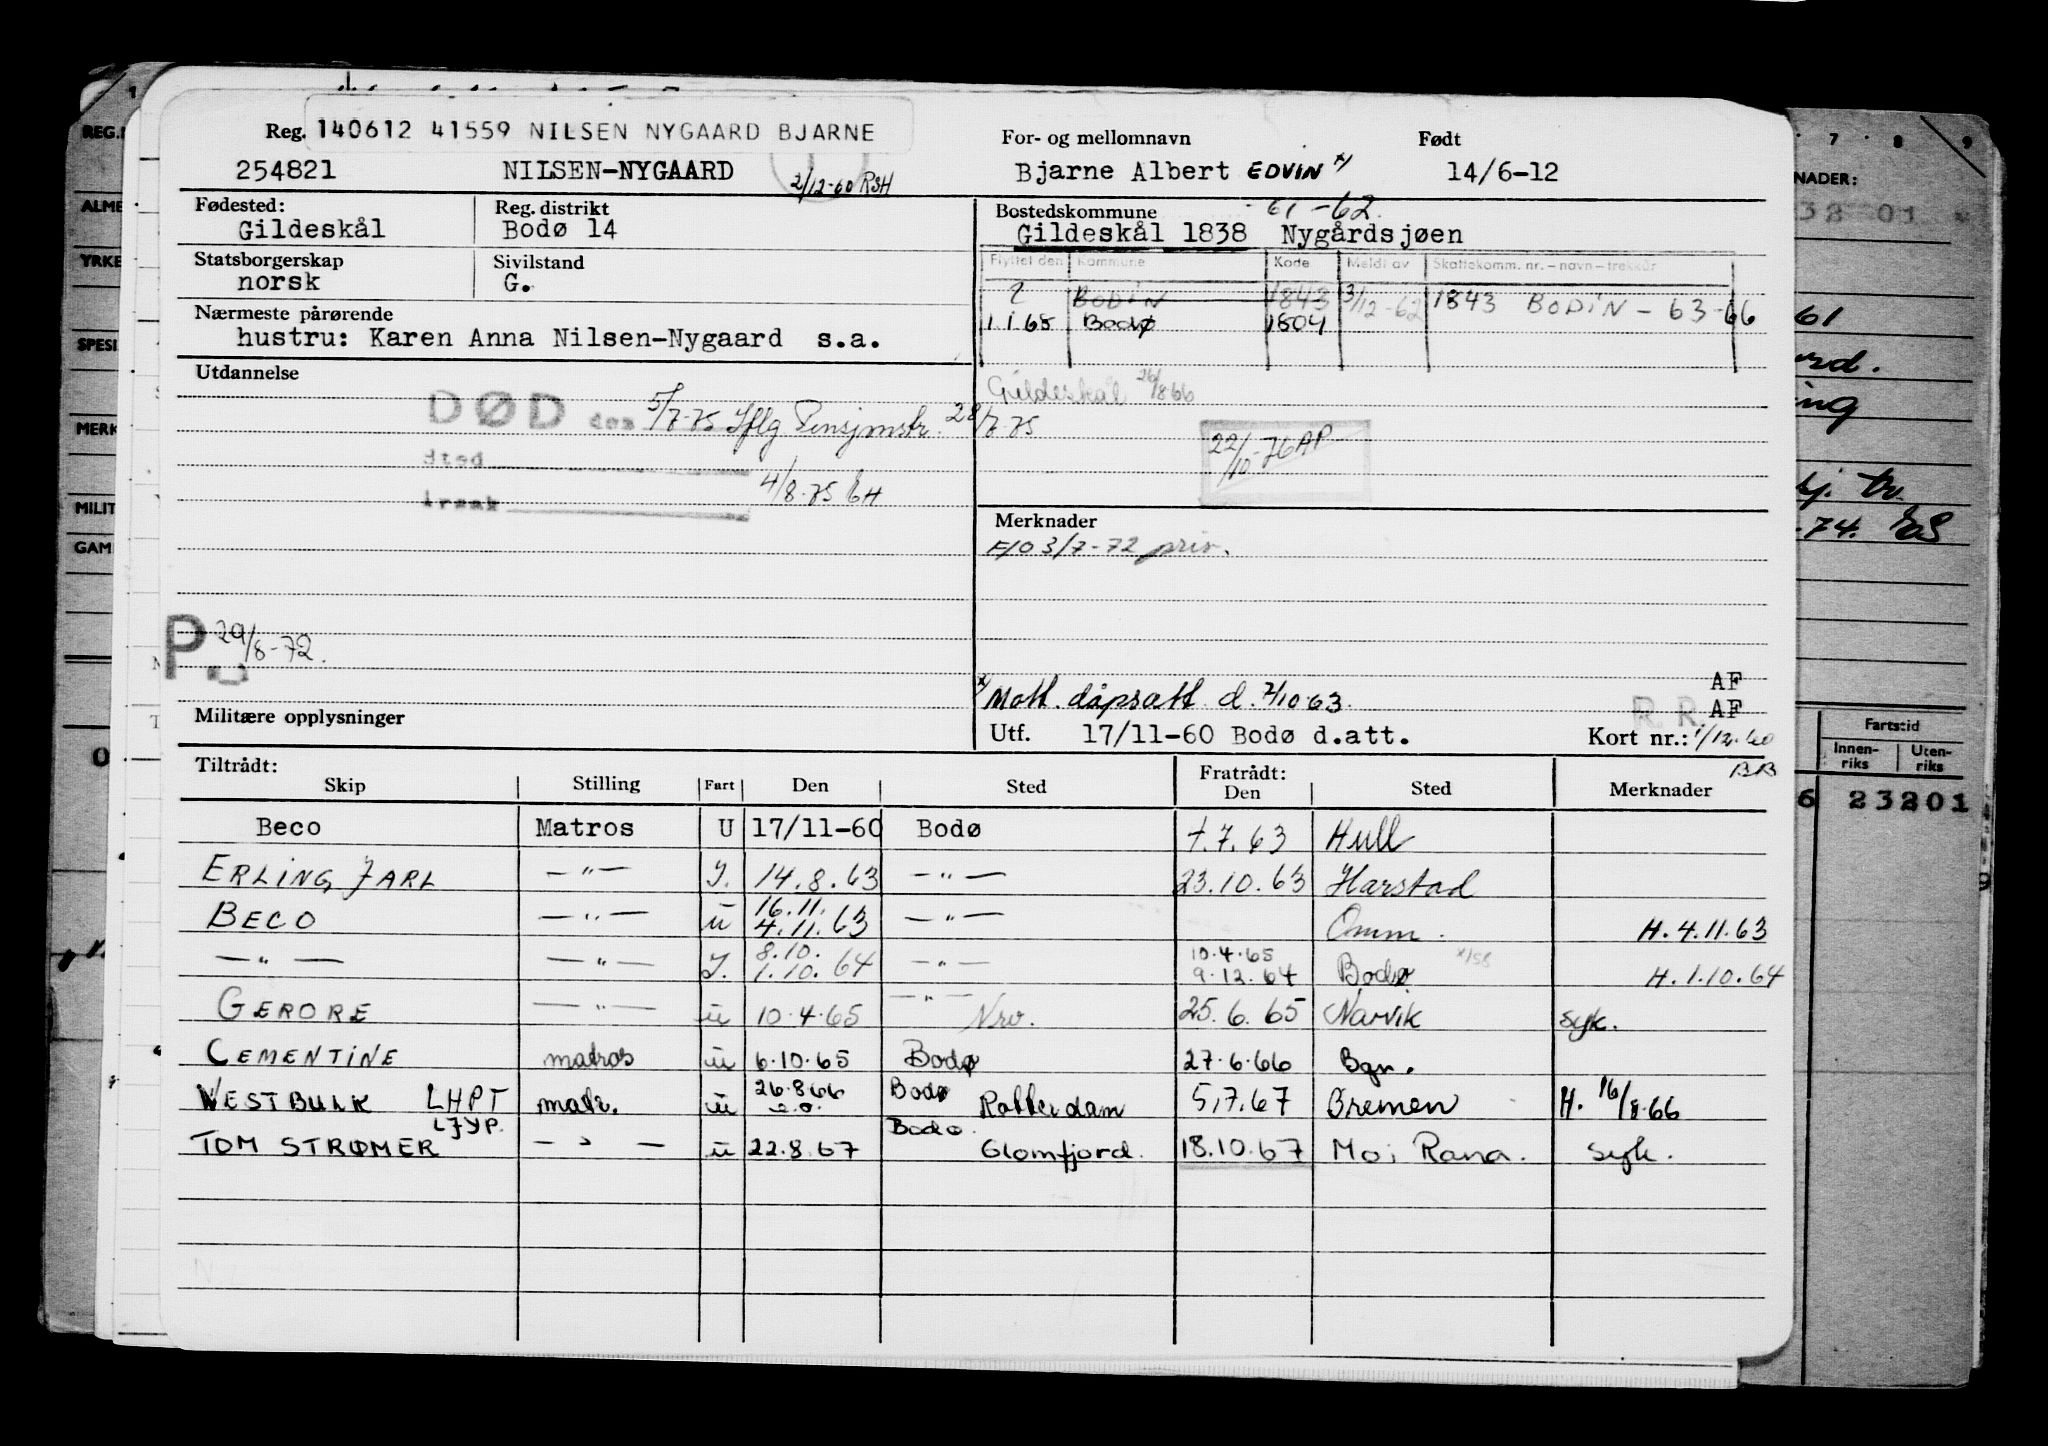 Reg. 140612 41559 NILSEN NYGAARD BJARNE
For- og mellomnavn Født
254821 NILSEN-NYGAARD 2/12-60 RSH
Bjarne Albert EDVIN x/ 14/6-12
Fødested: Reg. distrikt
Gildeskål Bodø 14
Bostedskommune - 61-62.
Gildeskål 1838 Nygårdsjøen
Statsborgerskap Sivilstand
norsk G.
Flyttet den Kommune Kode Meldt av Skattekomm. nr. – navn – trekkår
? BODIN 1843 3/12-62 1843 BODIN - 63-66
1 1 65 Bodø 1804
Nærmeste pårørende
hustru: Karen Anna Nilsen-Nygaard s.a.
Utdannelse
Gildeskål 26/8 66
DØD den 5/7-75 Iflg Pensjonstr. 28/7-75
Sted
4/8-75 EH
Årsak
22/10-76 AP
Merknader
F/O 3/7-72 priv.
P 29/8-72.
x/ Mott. dåpsatt. d. 2/10 63.
AF
R.R. AF
Militære opplysninger
Utf. 17/11-60 Bodø d.att.
Kort nr.: 1/12-60
BB
Tiltrådt: Fratrådt:
Skip Stilling Fart Den Sted Den Sted Merknader
Beco Matros U 17/11-60 Bodø 7.7.63 Hull
ERLING JARL — " — I. 14.8.63 — " — 23.10.63 Harstad
BECO — " — U 16.11. 4.11.63 — " — Omm. H. 4.11.63
— " — — " — I. 8.10. 1.10.64 — " — 10.4.65 9.12.64 Bodø x/58 H. 1.10.64
GERORE — " — U 10.4.65 — " — Nrv. 25.6.65 Narvik syk.
CEMENTINE matros U 6.10.65 Bodø 27.6.66 Bgn.
WESTBULK LHPT matr. U 26.8.66 Bodø Rotterdam 5.7.67 Bremen H. 16/8.66
TOM STRØMER LJYP. — " — U 22.8.67 Bodø. Glomfjord. 18.10.67 Mo i Rana. syk.
REG.
ALME
YRKE
SPESI
MERK
MILIT
GAM
7 8 9
NADER:
32 01
61
-74.
Fartstid
Innen-riks Uten-riks
6 23201